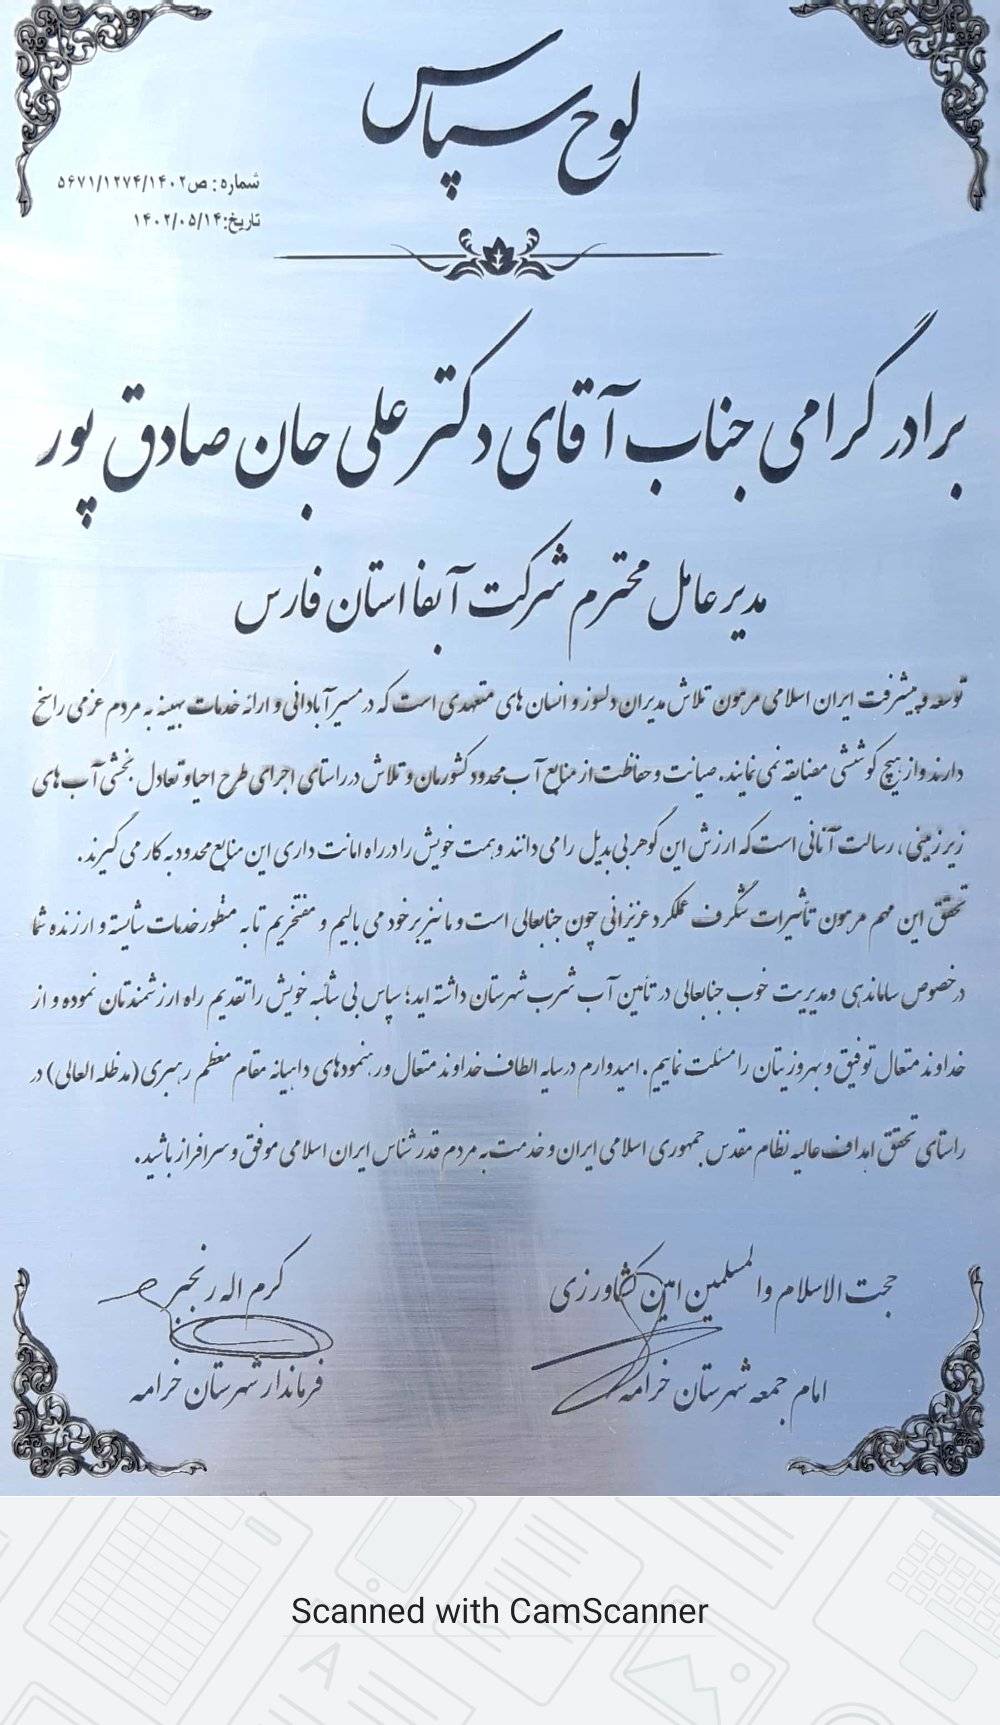 لوح سپاس
شماره: ص۵۶۷۱/۱۲۷۴/۱۴۰۲
تاریخ: ۱۴۰۲/۰۵/۱۴
برادر گرامی جناب آقای دکتر علی جان صادق پور
مدیر عامل محترم شرکت آبفا استان فارس
توسعه و پیشرفت ایران اسلامی مرهون تلاش مدیران دلسوز و انسان های متعهدی است که در مسیر آبادانی و ارائه خدمات بهینه به مردم عزمی راسخ
دارند و از هیچ کوششی مضایقه نمی نمایند. صیانت و حفاظت از منابع آب محدود کشورمان و تلاش در راستای اجرای طرح احیا و تعادل بخشی آب های
زیر زمینی، رسالت آنانی است که ارزش این گوهر بی بدیل را می دانند و همت خویش را در راه امانت داری این منابع محدود به کار می گیرند.
تحقق این مهم مرهون تأثیرات شگرف عملکرد عزیزانی چون جنابعالی است و ما نیز بر خود می بالیم و مفتخریم تا به منظور خدمات شایسته و ارزنده شما
در خصوص ساماندهی و مدیریت خوب جنابعالی در تأمین آب شرب شهرستان داشته اید؛ سپاس بی شائبه خویش را تقدیم راه ارزشمندتان نموده و از
خداوند متعال توفیق و بهروزیتان را مسئلت نماییم. امیدوارم در سایه الطاف خداوند متعال و رهنمودهای داهیانه مقام معظم رهبری (مدظله العالی) در
راستای تحقق اهداف عالیه نظام مقدس جمهوری اسلامی ایران و خدمت به مردم قدرشناس ایران اسلامی موفق و سرافراز باشید.
حجت الاسلام والمسلمین امین کشاورزی
امام جمعه شهرستان خرامه
کرم اله رنجبر
فرماندار شهرستان خرامه
Scanned with CamScanner